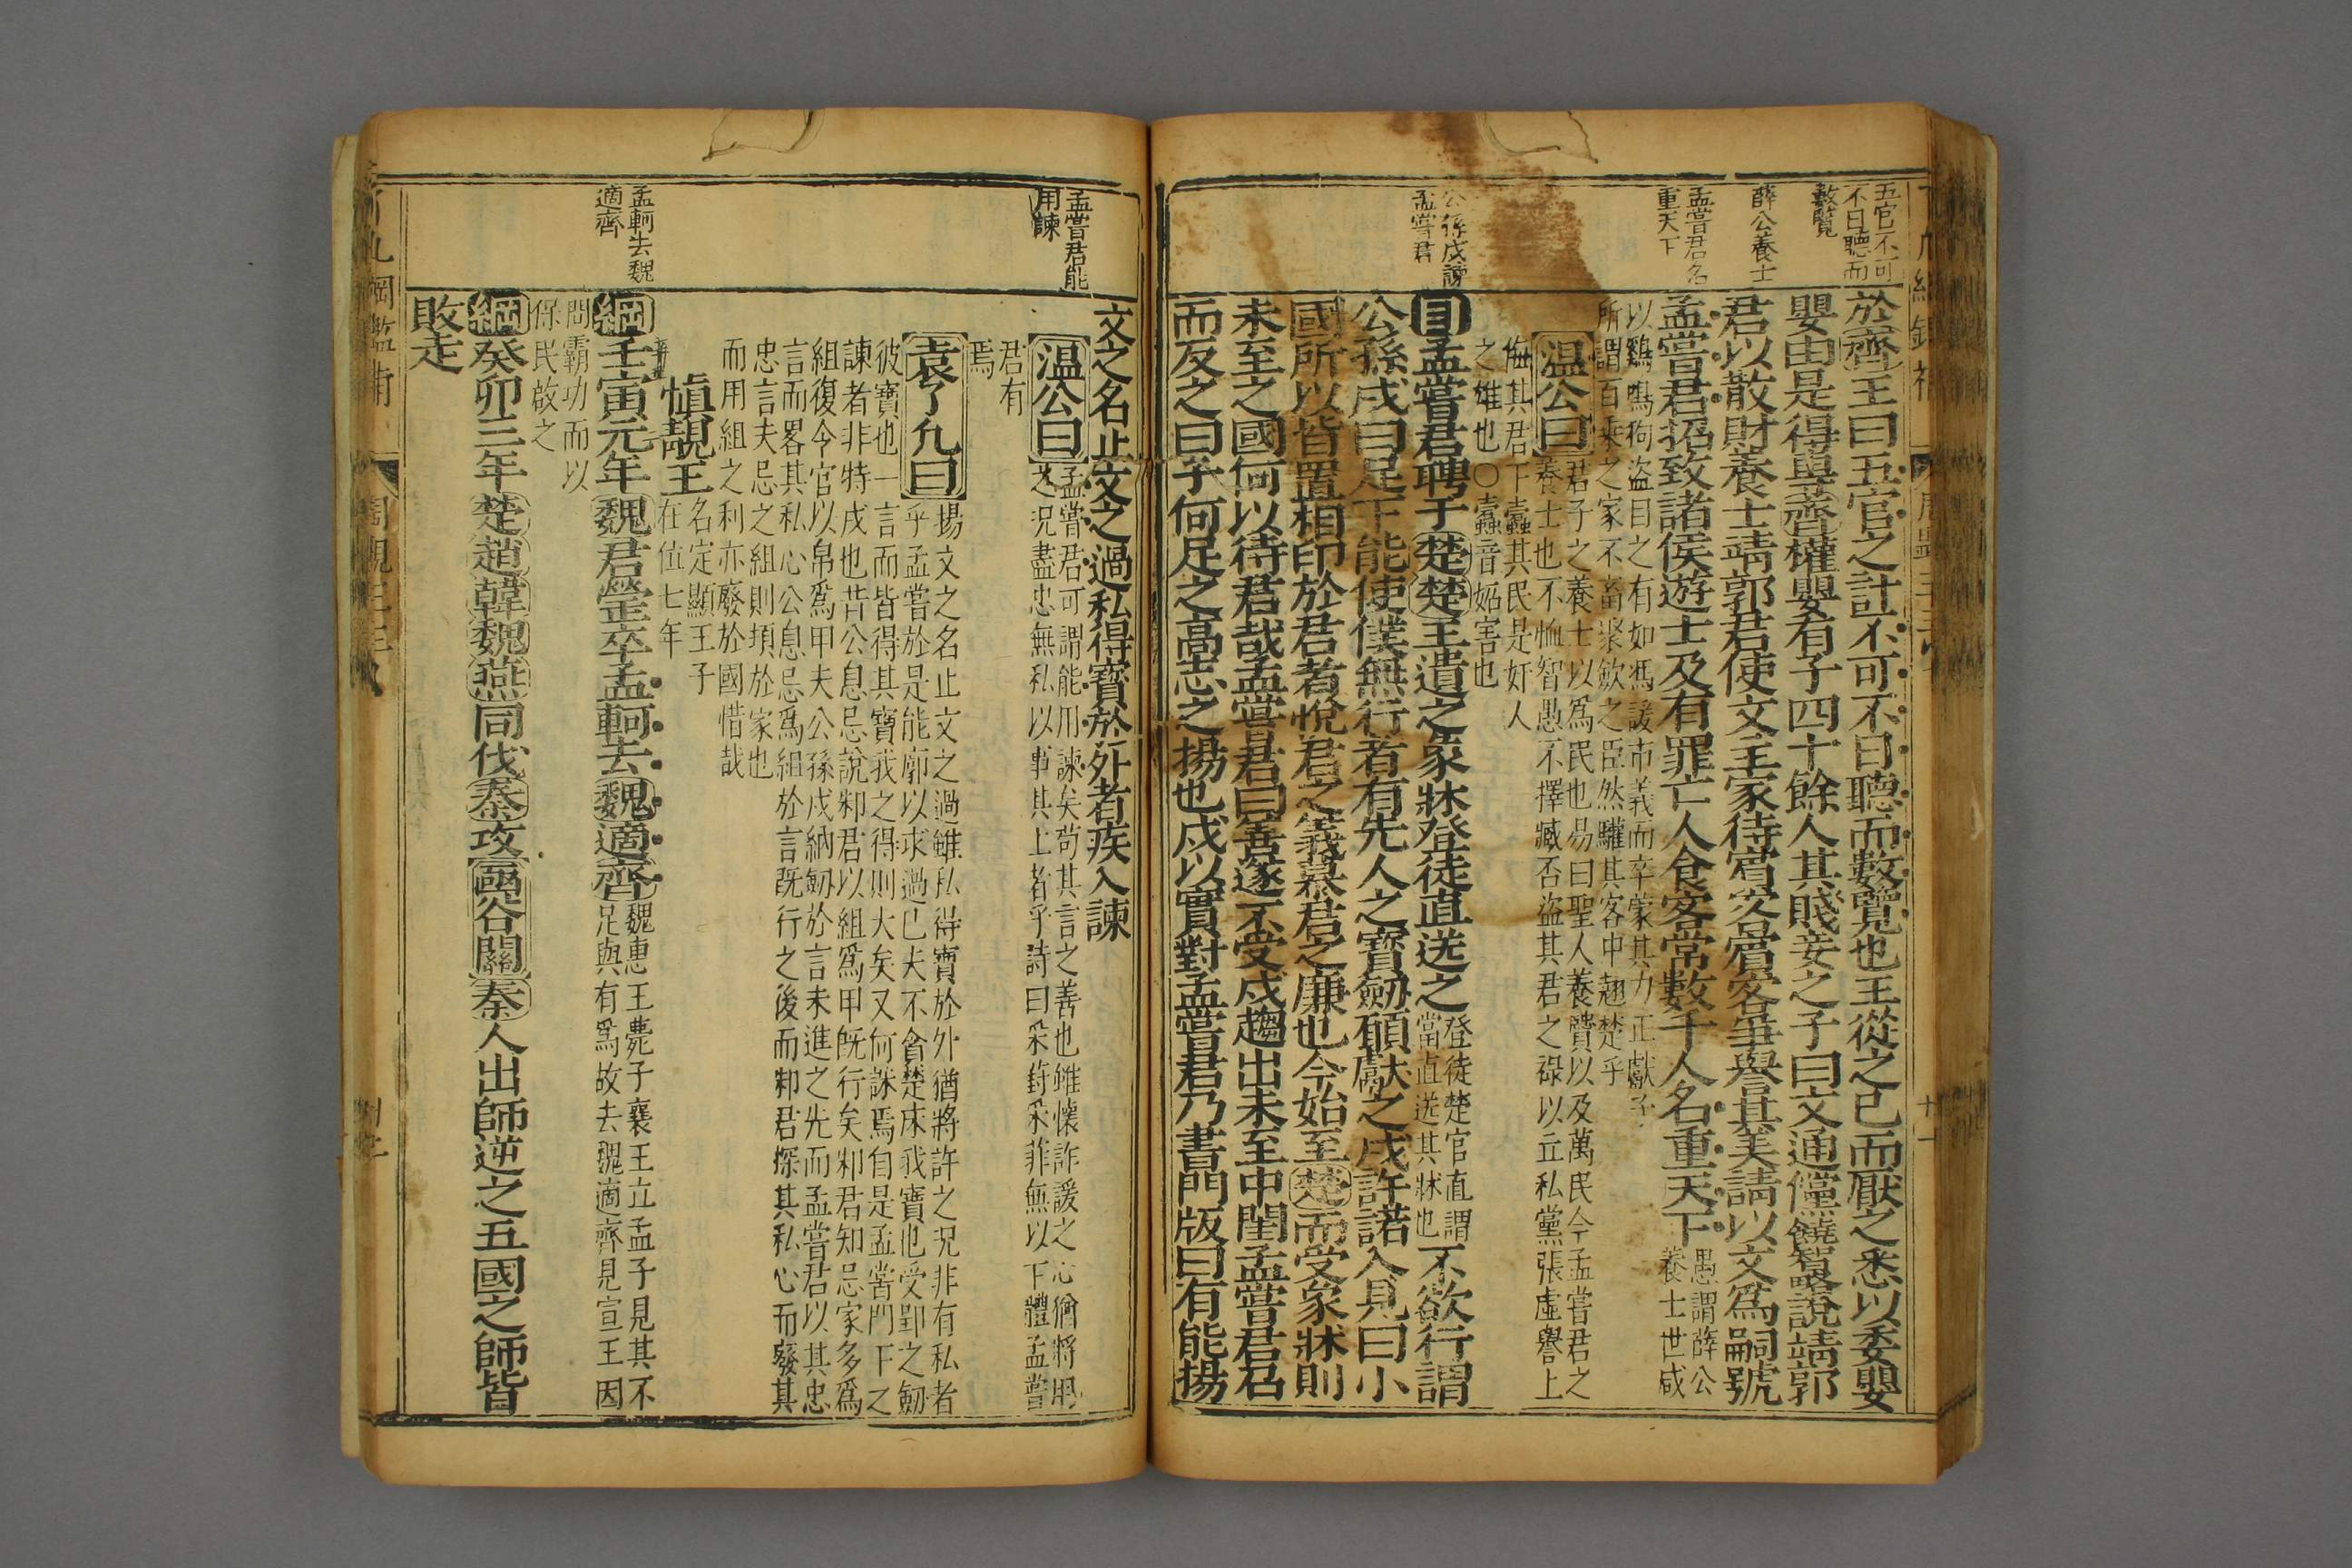 五官不可
不日聽而
數覽
薛公養士
孟嘗君名
重天下
公孫戌諫
孟嘗君
於齊王曰五官之計不可不日聽而數覽也王從之已而厭之悉以委嬰
嬰由是得專齊權嬰有子四十餘人其賤妾之子曰文通儻饒智略說靖郭
君以散財養士靖郭君使文主家待賓客賓客爭譽其美請以文爲嗣號
孟嘗君招致諸侯遊士及有罪亡人食客常數千人名重天下愚謂薛公
養士世咸
以鷄鳴狗盜目之有如馮諼市義而卒蒙其力正獻子
所謂百乘之家不畜聚歛之臣然驩其客中翹楚乎
溫公曰君子之養士以爲民也易曰聖人養賢以及萬民今孟嘗君之
養士也不恤智愚不擇臧否盜其君之祿以立私黨張虛譽上
侮其君下蠹其民是奸人
之雄也○蠹音妬害也
目孟嘗君聘于楚楚王遺之象牀登徒直送之登徒楚官直謂
當直送其牀也不欲行謂
公孫戌曰足下能使僕無行者有先人之寶劒願獻之戌許諾入見曰小
國所以皆置相印於君者悅君之義慕君之廉也今始至楚而受象牀則
未至之國何以待君哉孟嘗君曰善遂不受戌趨出未至中閨孟嘗君召
而反之曰子何足之高志之揚也戌以實對孟嘗君乃書門版曰有能揚
孟嘗君能
用諫
孟軻去魏
適齊
文之名止文之過私得寶於外者疾入諫
溫公曰孟嘗君可謂能用諫矣苟其言之善也雖懷詐諼之心猶將用
之况盡忠無私以事其上者乎詩曰采葑采菲無以下體孟嘗
君有
焉
袁了凡曰揚文之名止文之過雖私得寶於外猶將許之况非有私者
乎孟嘗於是能廓以求過已夫不貪楚床我寶也受郢之劒
彼寶也一言而皆得其寶我之得則大矣又何誅焉自是孟嘗門下之
諫者非特戌也昔公息忌說邾君以組爲甲既行矣邾君知忌家多爲
組復令官以帛爲甲夫公孫戌納劒於言未進之先而孟嘗君以其忠
言而畧其私心公息忌爲組於言既行之後而邾君探其私心而廢其
忠言夫忌之組則項於家也
而用組之利亦廢於國惜哉
愼靚王名定顯王子
在位七年
綱壬寅元年魏君罃卒孟軻去魏適齊魏惠王薨子襄王立孟子見其不
足與有爲故去魏適齊見宣王因
問霸功而以
保民啟之
綱癸卯三年楚趙韓魏燕同伐秦攻函谷關秦人出師逆之五國之師皆
敗走